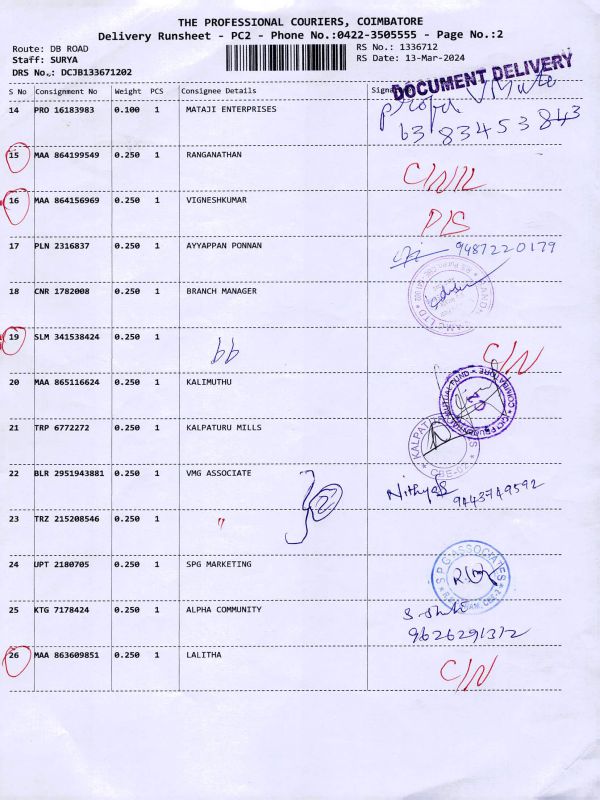 THE PROFESSIONAL COURIERS, COIMBATORE
Delivery Runsheet - PC2 - Phone No.:0422-3505555 - Page No.:2
Route: DB ROAD
Staff: SURYA
DRS No.: DCJB133671202
RS No.: 1336712
RS Date: 13-Mar-2024
DOCUMENT DELIVERY
S No Consignment No Weight PCS Consignee Details
14 PRO 16183983 0.100 1 MATAJI ENTERPRISES
6383453843
15 MAA 864199549 0.250 1 RANGANATHAN
16 MAA 864156969 0.250 1 VIGNESHKUMAR
17 PLN 2316837 0.250 1 AYYAPPAN PONNAN 9487220179
18 CNR 1782008 0.250 1 BRANCH MANAGER
19 SLM 341538424 0.250 1
bb
C/N
20 MAA 865116624 0.250 1 KALIMUTHU
21 TRP 6772272 0.250 1 KALPATURU MILLS
CBE-02
22 BLR 2951943881 0.250 1 VMG ASSOCIATE
9443749592
23 TRZ 215208546 0.250 1 "
24 UPT 2180705 0.250 1 SPG MARKETING
S.P.G ASSOCIATES
25 KTG 7178424 0.250 1 ALPHA COMMUNITY
9626291372
26 MAA 863609851 0.250 1 LALITHA
C/N